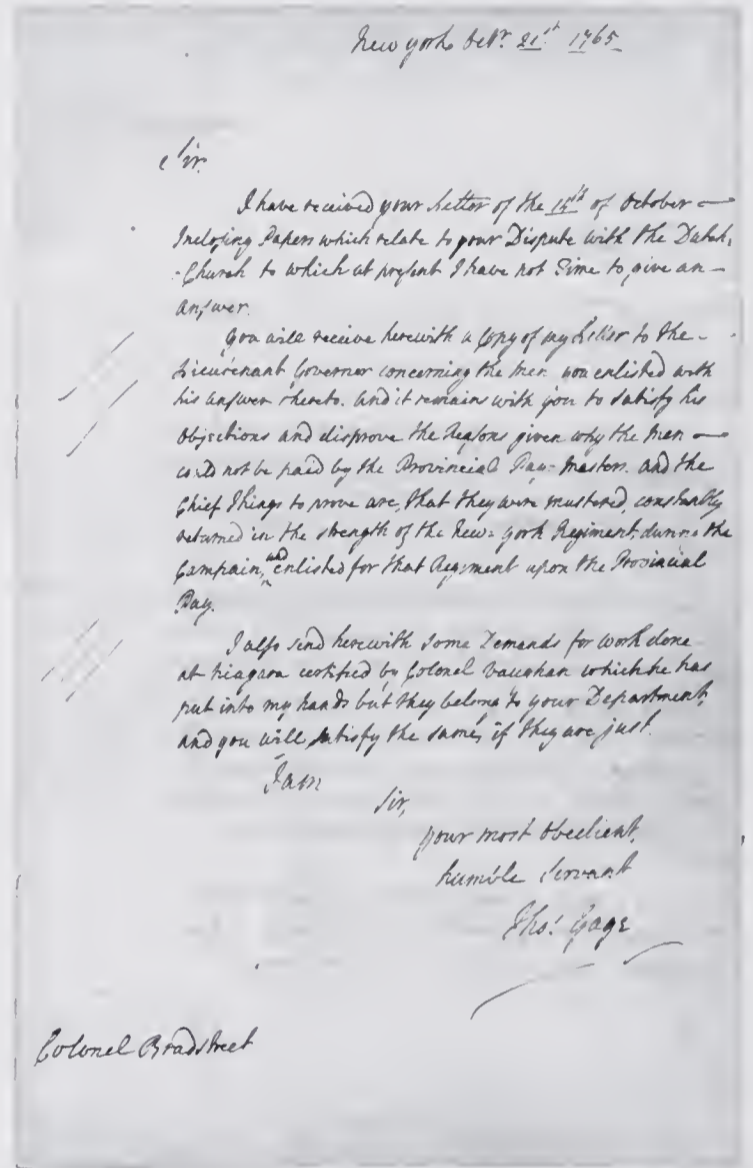 New york Octr. 21st 1765
Sir.
I have received your Letter of the 15th of October
Inclosing Papers which relate to your Dispute with the Dutch,
Church to which at present I have not Time to give an
Answer.
You will receive herewith a Copy of my Letter to the
Lieutenant Governor concerning the Men you enlisted with
his answer thereto. And it remains with you to satisfy his
Objections and disprove the Reasons given why the Men
could not be paid by the Provincial Pay-Masters. and the
Chief Things to prove are, that they were mustered, constantly
returned in the strength of the New-york Regiment, during the
Campain, and enlisted for that Regiment upon the Provincial
Pay.
I also send herewith some Demands for work done
at Niagara certified by Colonel Vaughan which he has
put into my hands but they belong to your Department,
and you will satisfy the same, if they are just.
I am
Sir,
your most Obedient,
humble Servant
Thos. Gage
Colonel Bradstreet